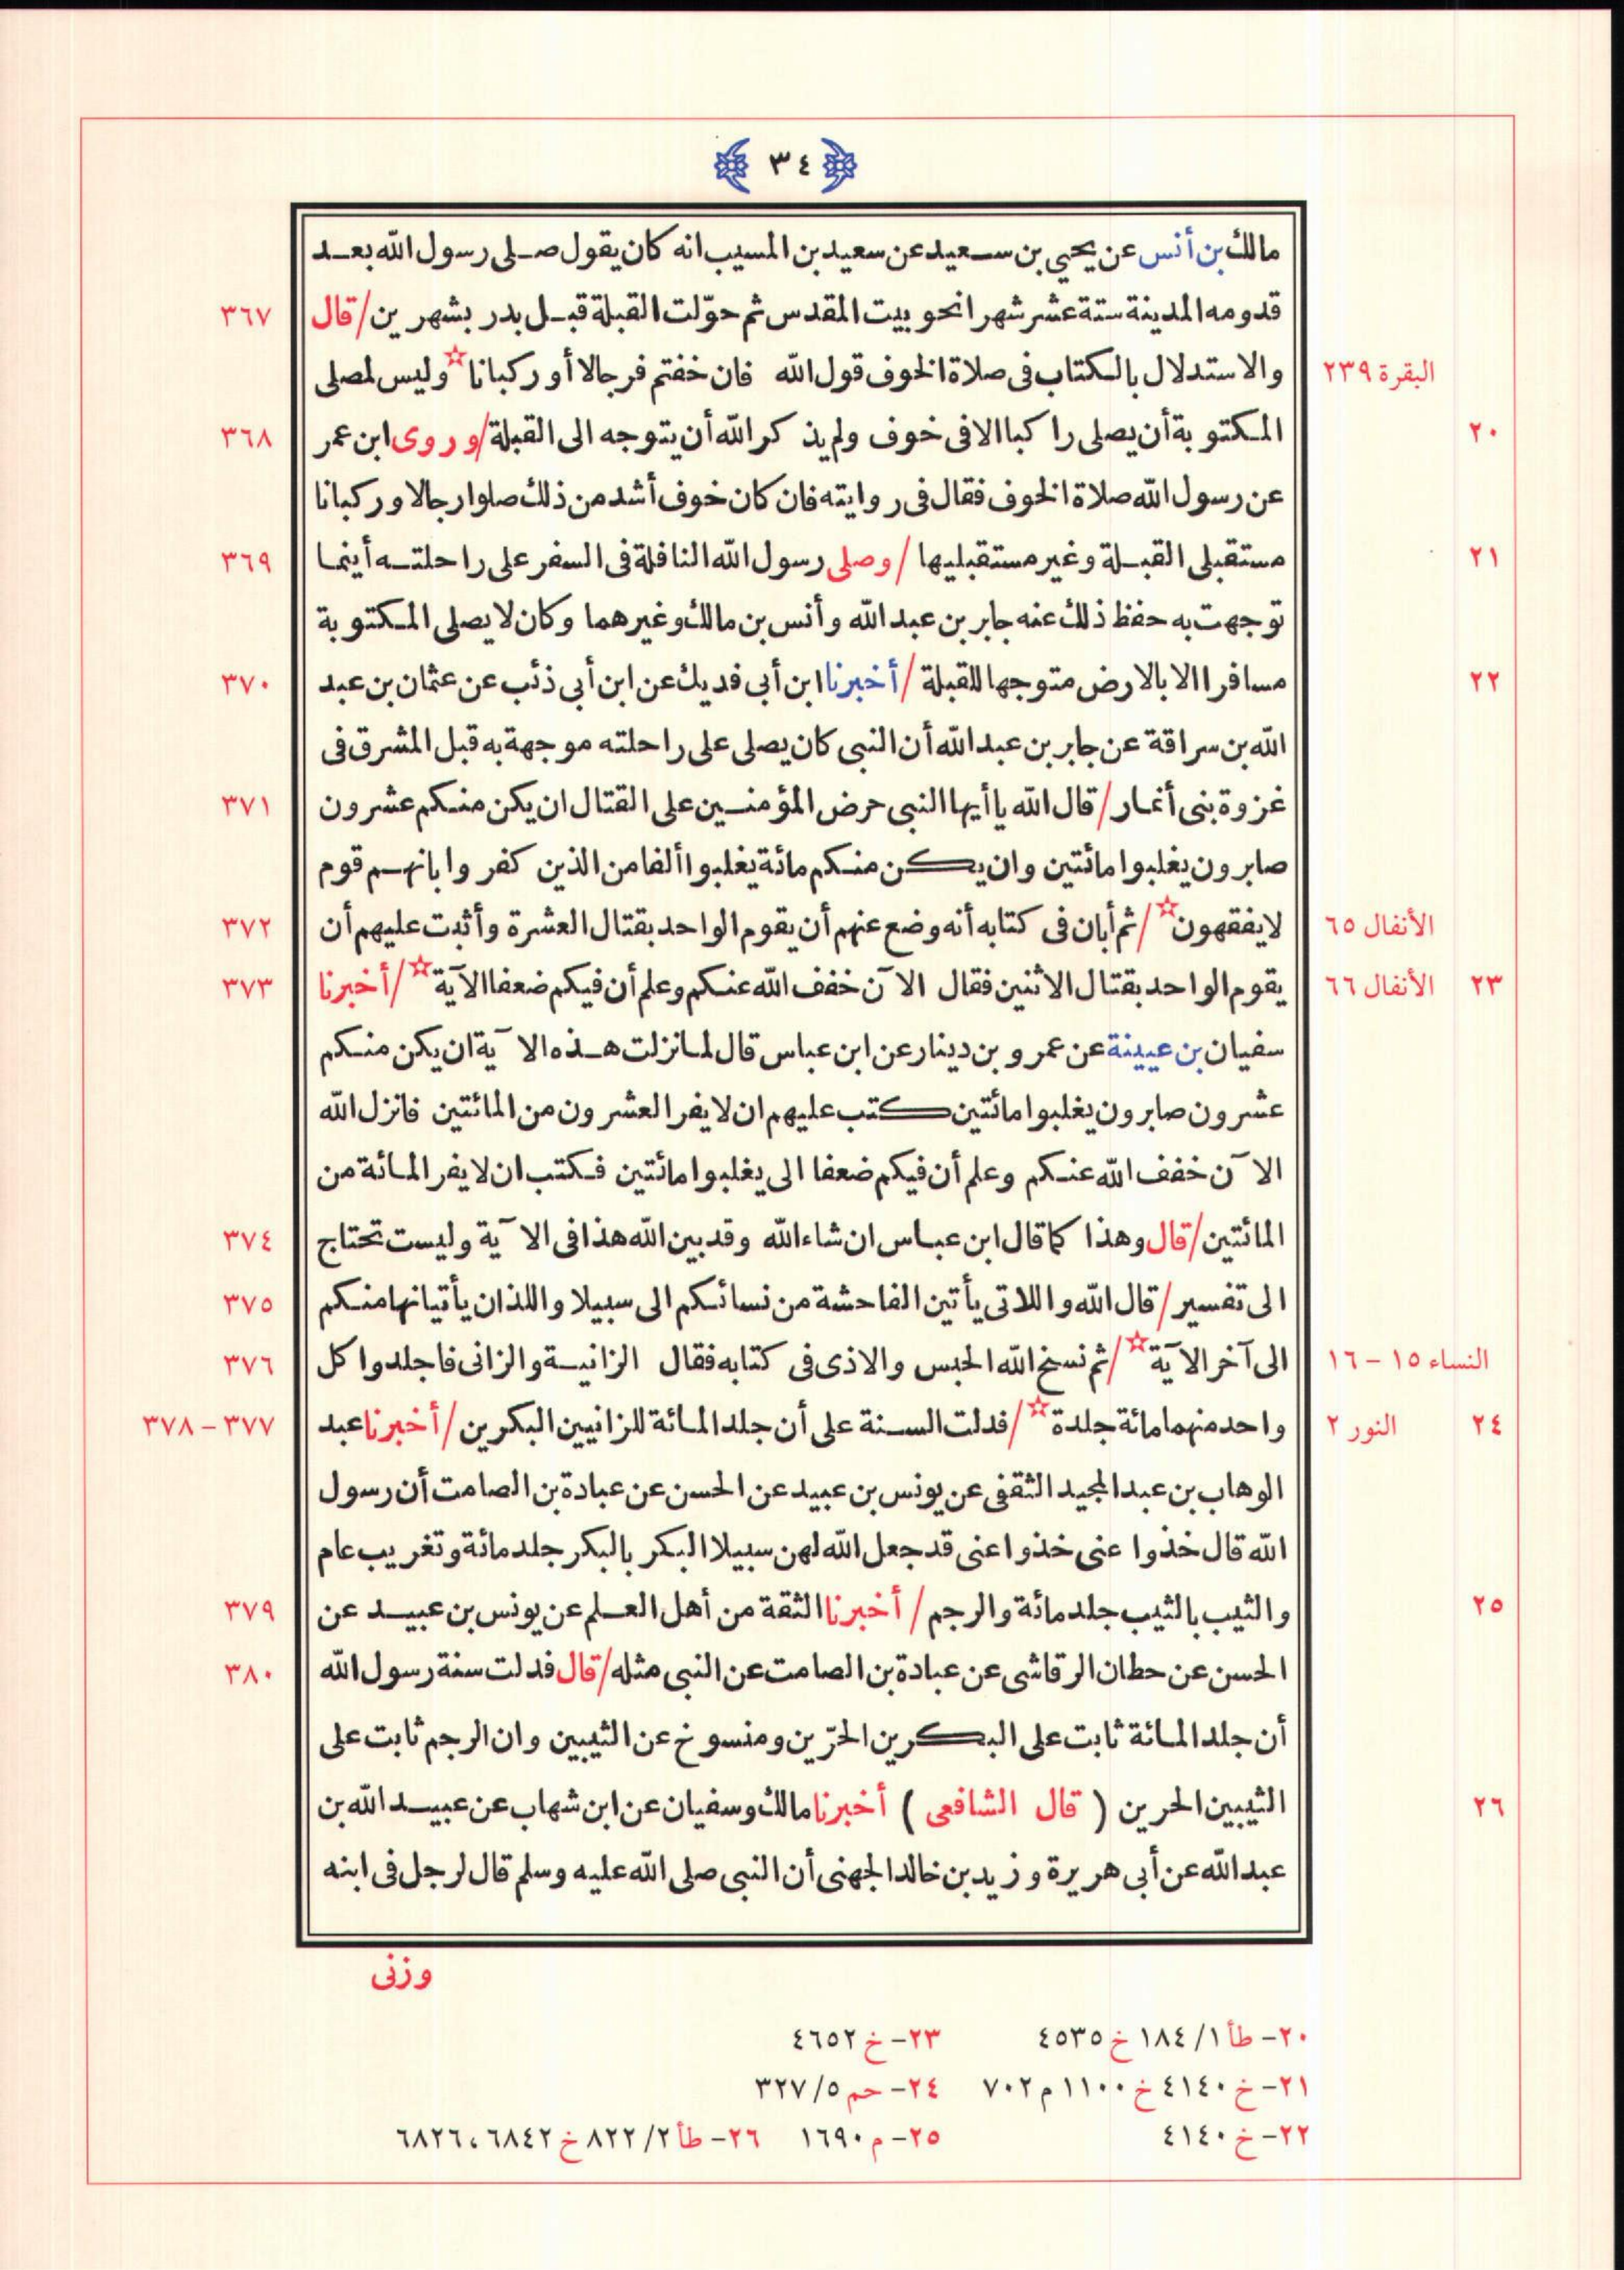 ٣٤
مالك بن أنس عن يحيي بن سعيد عن سعيد بن المسيب انه كان يقول صلى رسول الله بعد
قدومه المدينة ستة عشر شهرا نحو بيت المقدس ثم حوّلت القبلة قبل بدر بشهرين / قال ٣٦٧
البقرة ٢٣٩ والاستدلال بالكتاب فى صلاة الخوف قول الله فان خفتم فرجالا أو ركبانا☆ وليس لمصلى
٢٠ المكتوبة أن يصلى راكبا الا فى خوف ولم يذكر الله أن يتوجه الى القبلة / وروى ابن عمر ٣٦٨
عن رسول الله صلاة الخوف فقال فى روايته فان كان خوف أشد من ذلك صلوا رجالا وركبانا
٢١ مستقبلى القبلة وغير مستقبليها / وصلى رسول الله النافلة فى السفر على راحلته أينما ٣٦٩
توجهت به حفظ ذلك عنه جابر بن عبد الله وأنس بن مالك وغيرهما وكان لا يصلى المكتوبة
٢٢ مسافرا الا بالارض متوجها للقبلة / أخبرنا ابن أبى فديك عن ابن أبى ذئب عن عثمان بن عبد ٣٧٠
الله بن سراقة عن جابر بن عبد الله أن النبى كان يصلى على راحلته موجهة به قبل المشرق فى
غزوة بنى أنمار / قال الله يا أيها النبى حرض المؤمنين على القتال ان يكن منكم عشرون ٣٧١
صابرون يغلبوا مائتين وان يكن منكم مائة يغلبوا ألفا من الذين كفروا بانهم قوم
الأنفال ٦٥ لا يفقهون☆ / ثم أبان فى كتابه أنه وضع عنهم أن يقوم الواحد بقتال العشرة وأثبت عليهم أن ٣٧٢
٢٣ الأنفال ٦٦ يقوم الواحد بقتال الاثنين فقال الآن خفف الله عنكم وعلم أن فيكم ضعفا الآية☆ / أخبرنا ٣٧٣
سفيان بن عيينة عن عمرو بن دينار عن ابن عباس قال لما نزلت هذه الآية ان يكن منكم
عشرون صابرون يغلبوا مائتين كتب عليهم ان لا يفر العشرون من المائتين فانزل الله
الآن خفف الله عنكم وعلم أن فيكم ضعفا الى يغلبوا مائتين فكتب ان لا يفر المائة من
المائتين / قال وهذا كما قال ابن عباس ان شاء الله وقد بين الله هذا فى الآية وليست تحتاج ٣٧٤
الى تفسير / قال الله واللاتى يأتين الفاحشة من نسائكم الى سبيلا واللذان يأتيانها منكم ٣٧٥
النساء ١٥ - ١٦ الى آخر الآية☆ / ثم نسخ الله الحبس والاذى فى كتابه فقال الزانية والزانى فاجلدوا كل ٣٧٦
٢٤ النور ٢ واحد منهما مائة جلدة☆ / فدلت السنة على أن جلد المائة للزانيين البكرين / أخبرنا عبد ٣٧٧ - ٣٧٨
الوهاب بن عبد المجيد الثقفى عن يونس بن عبيد عن الحسن عن عبادة بن الصامت أن رسول
الله قال خذوا عنى خذوا عنى قد جعل الله لهن سبيلا البكر بالبكر جلد مائة وتغريب عام
٢٥ والثيب بالثيب جلد مائة والرجم / أخبرنا الثقة من أهل العلم عن يونس بن عبيد عن ٣٧٩
الحسن عن حطان الرقاشى عن عبادة بن الصامت عن النبى مثله / قال فدلت سنة رسول الله ٣٨٠
أن جلد المائة ثابت على البكرين الحرّين ومنسوخ عن الثيبين وان الرجم ثابت على
٢٦ الثيبين الحرين ( قال الشافعى ) أخبرنا مالك وسفيان عن ابن شهاب عن عبيد الله بن
عبد الله عن أبى هريرة وزيد بن خالد الجهنى أن النبى صلى الله عليه وسلم قال لرجل فى ابنه
وزنى
٢٠- طأ ١/ ١٨٤ خ ٤٥٣٥ ٢٣- خ ٤٦٥٢
٢١- خ ٤١٤٠ خ ١١٠٠ م ٧٠٢ ٢٤- حم ٥/ ٣٢٧
٢٢- خ ٤١٤٠ ٢٥- م ١٦٩٠ ٢٦- طأ ٢/ ٨٢٢ خ ٦٨٤٢ ، ٦٨٢٦